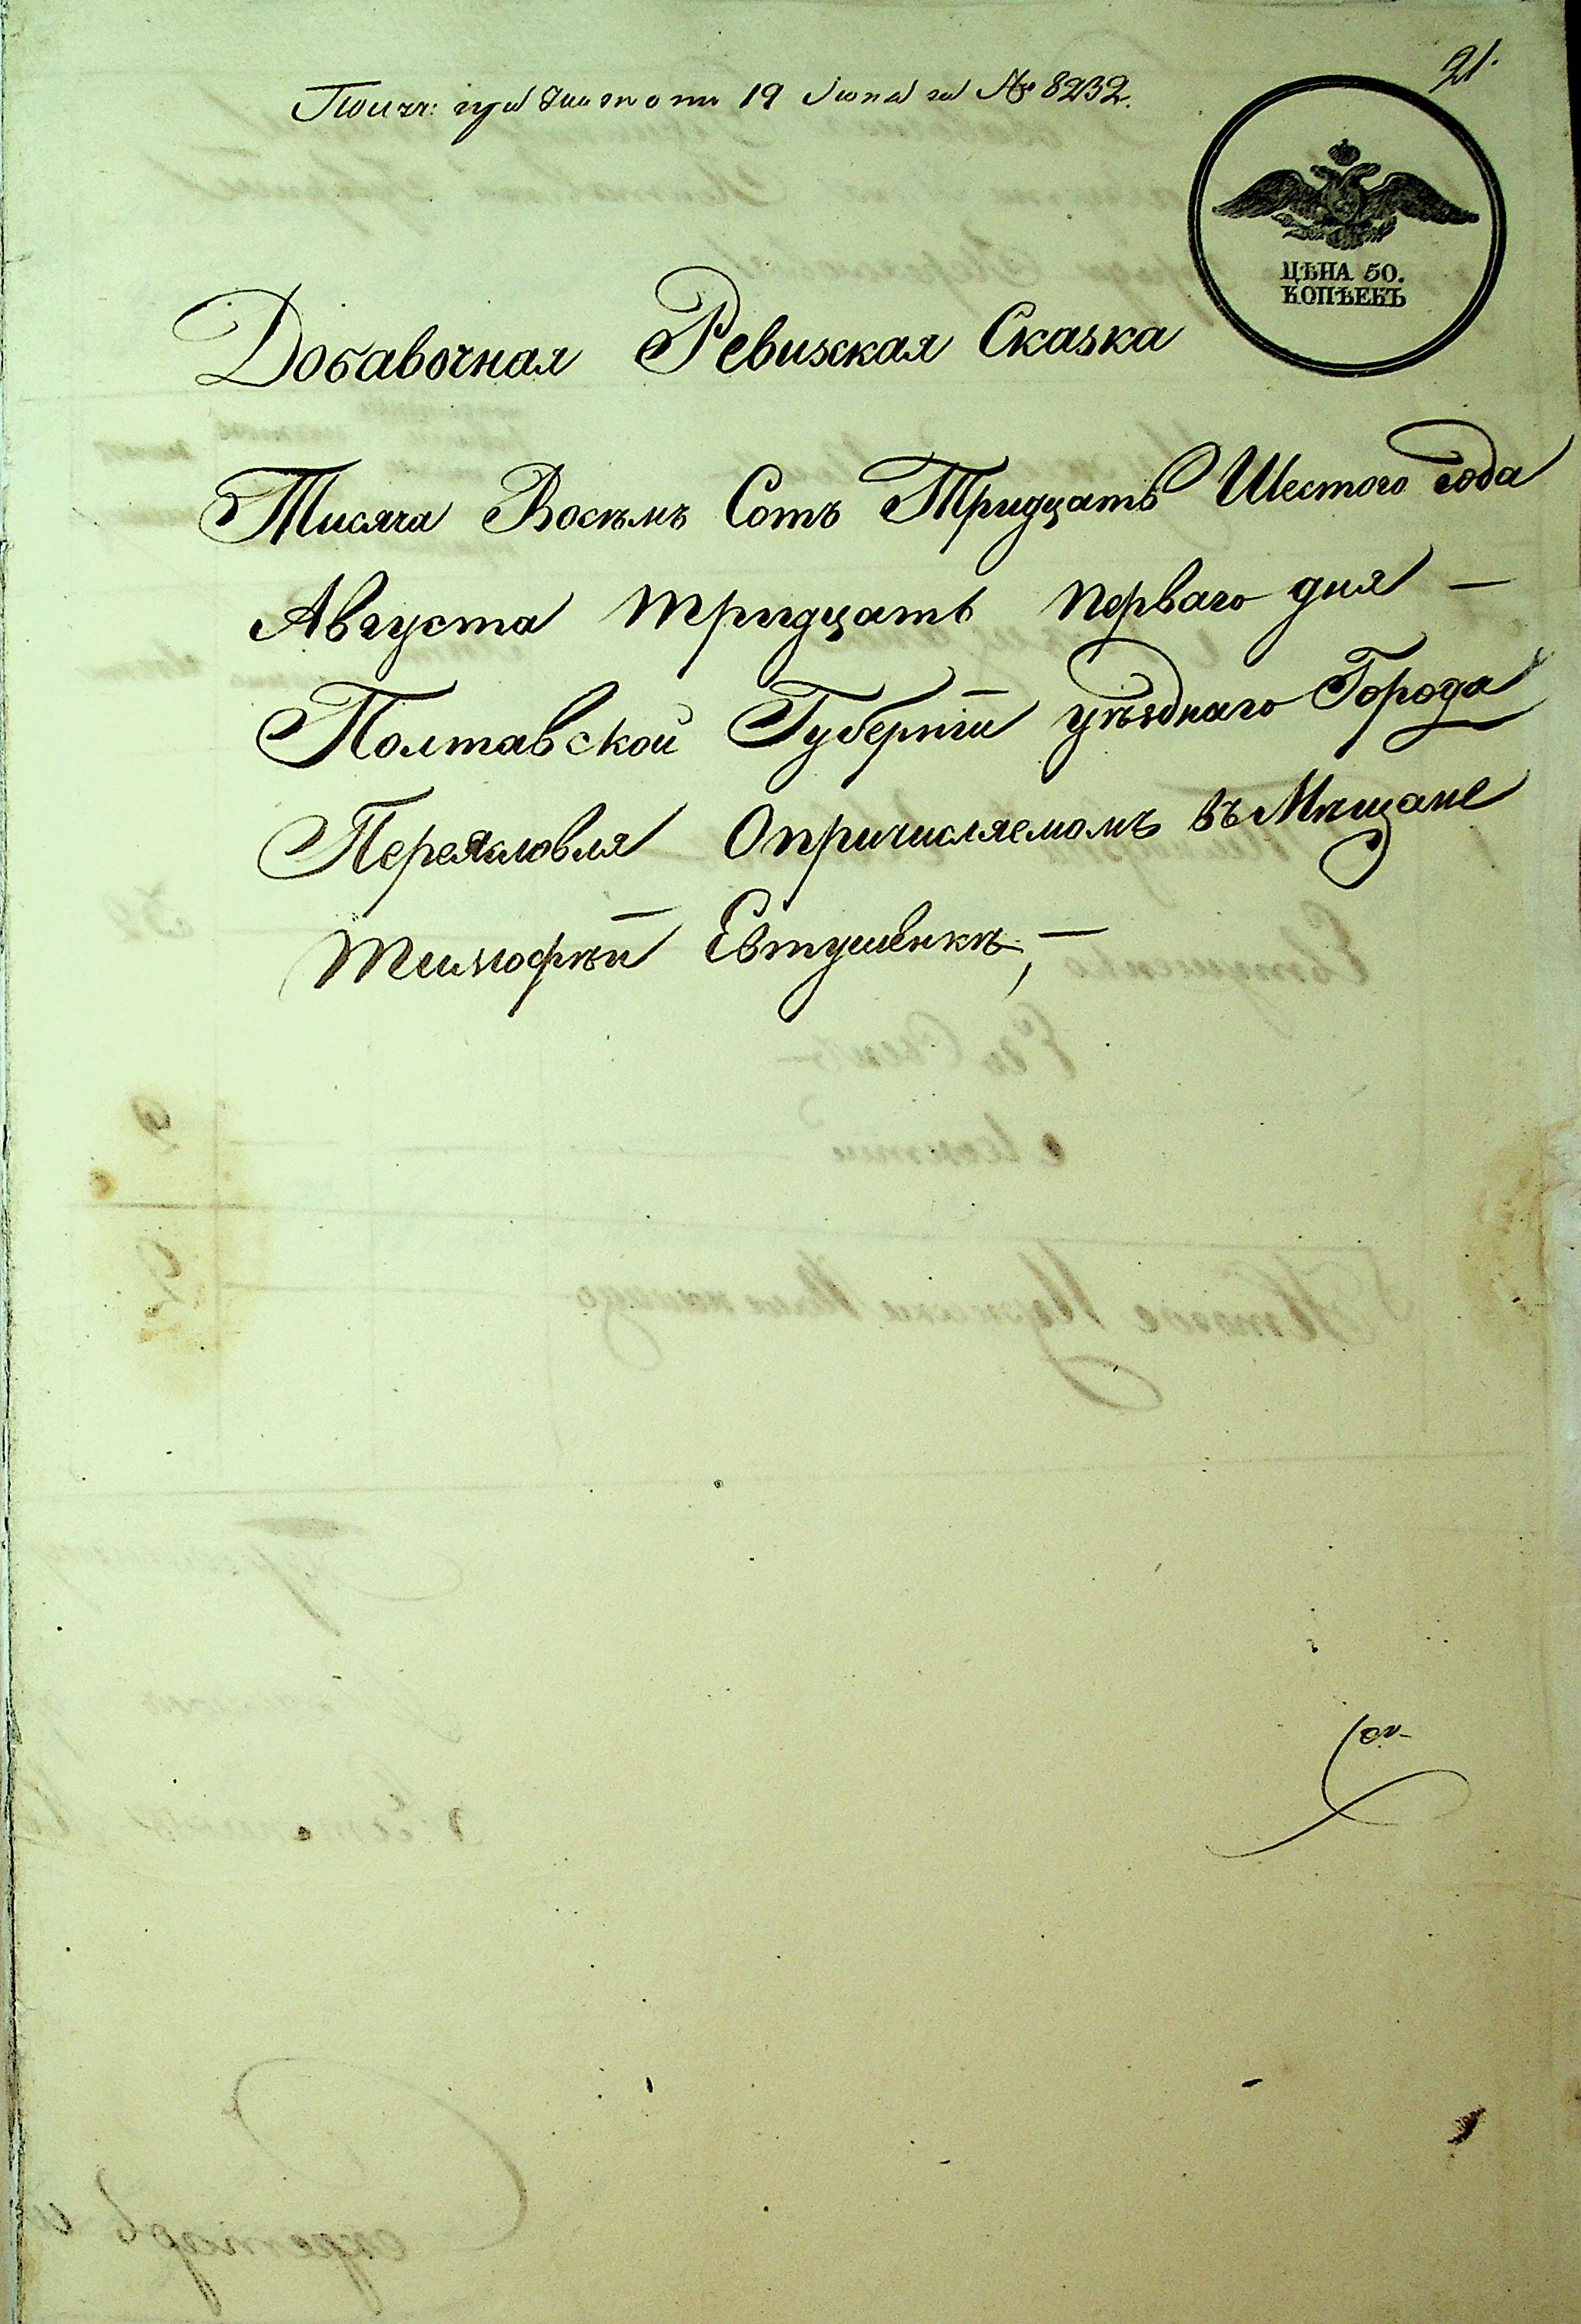 21.
Получ: при Билетѣ 19 Іюня за № 8232.
ЦѢНА 50.
КОПѢЕКЪ
Добавочная Ревижская Сказка
Тисяча Восѣмъ Сотъ Тридцать Шестого года
Августа тридцать перваго дня —
Полтавской Губерніи уѣзднаго Города
Переяловля Опричисляемомъ въ Мѣщане
Тимофѣи Евтушенкѣ, —